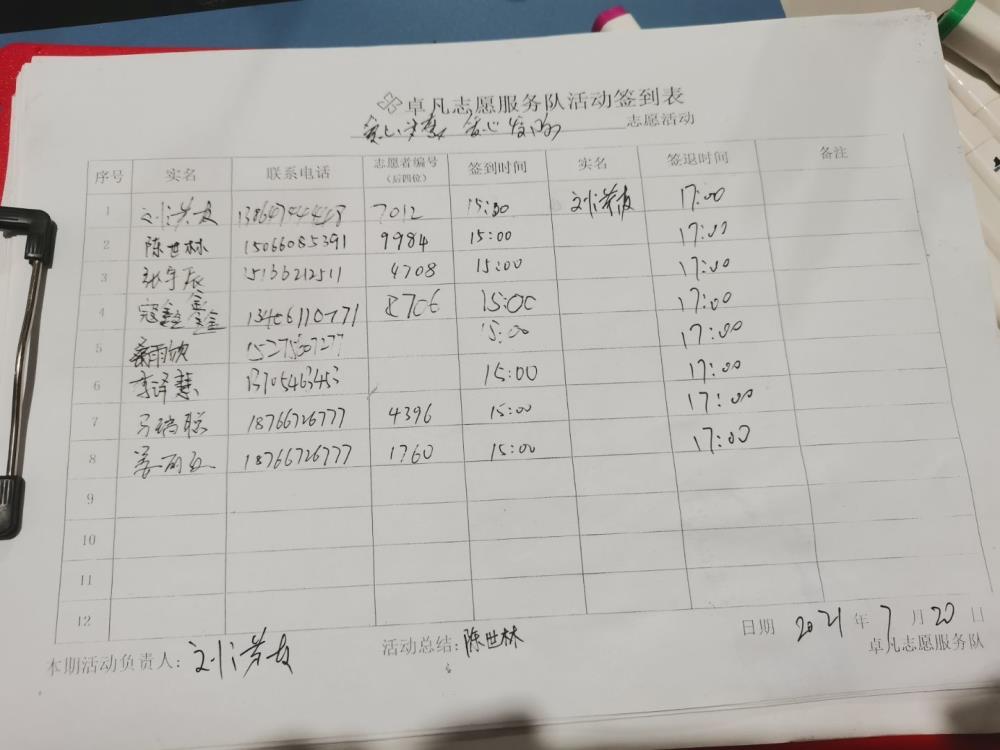 卓凡志愿服务队活动签到表
爱心 爱心 志愿活动
序号 实名 联系电话 志愿者编号(后四位) 签到时间 实名 签退时间 备注
1 刘洪友 7012 15:00 刘洪友 17:00
2 陈世林 15066085391 9984 15:00 17:00
3 张宇辰 15133212511 4708 15:00 17:00
4 寇鑫鑫 8706 15:00 17:00
5 15275607277 15:00 17:00
6 李泽慧 13705463453 15:00 17:00
7 马瑞聪 18766726777 4396 15:00 17:00
8 18766726777 1760 15:00 17:00
9
10
11
12
本期活动负责人: 刘洪友 活动总结: 陈世林 日期 2021 年 7 月 20 日
卓凡志愿服务队